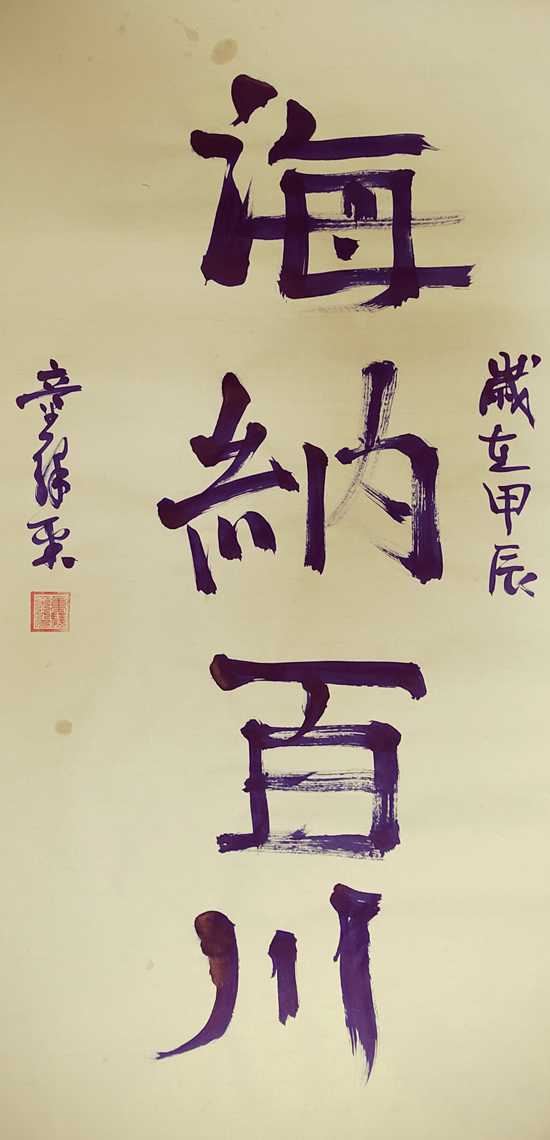 歲在甲辰
海納百川